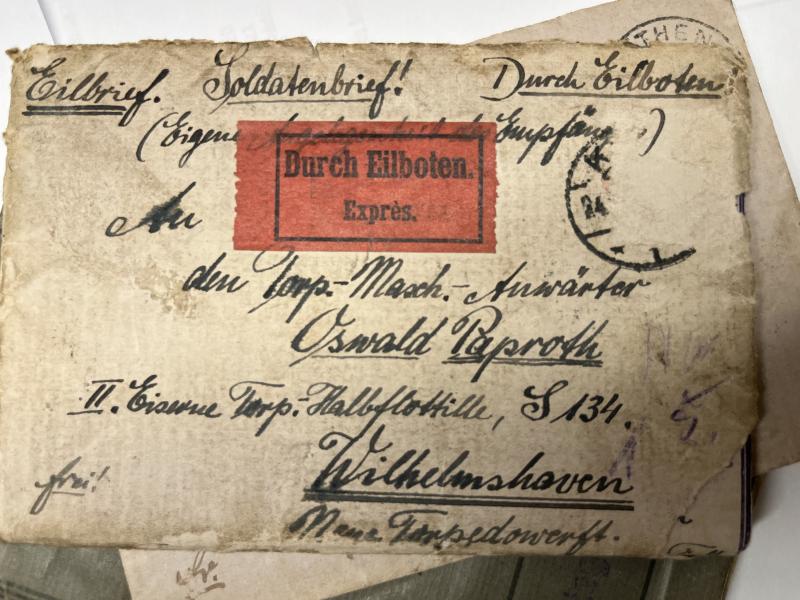 THEN
Eilbrief. Soldatenbrief! Durch Eilboten
(Eigene Empfänger)
Durch Eilboten.
Exprès.
An
den Torp.-Masch.-Anwärter
Oswald Paproth
II. Eiserne Torp.-Halbflottille, S 134.
5.
frei! Wilhelmshaven
Neue Torpedowerft.